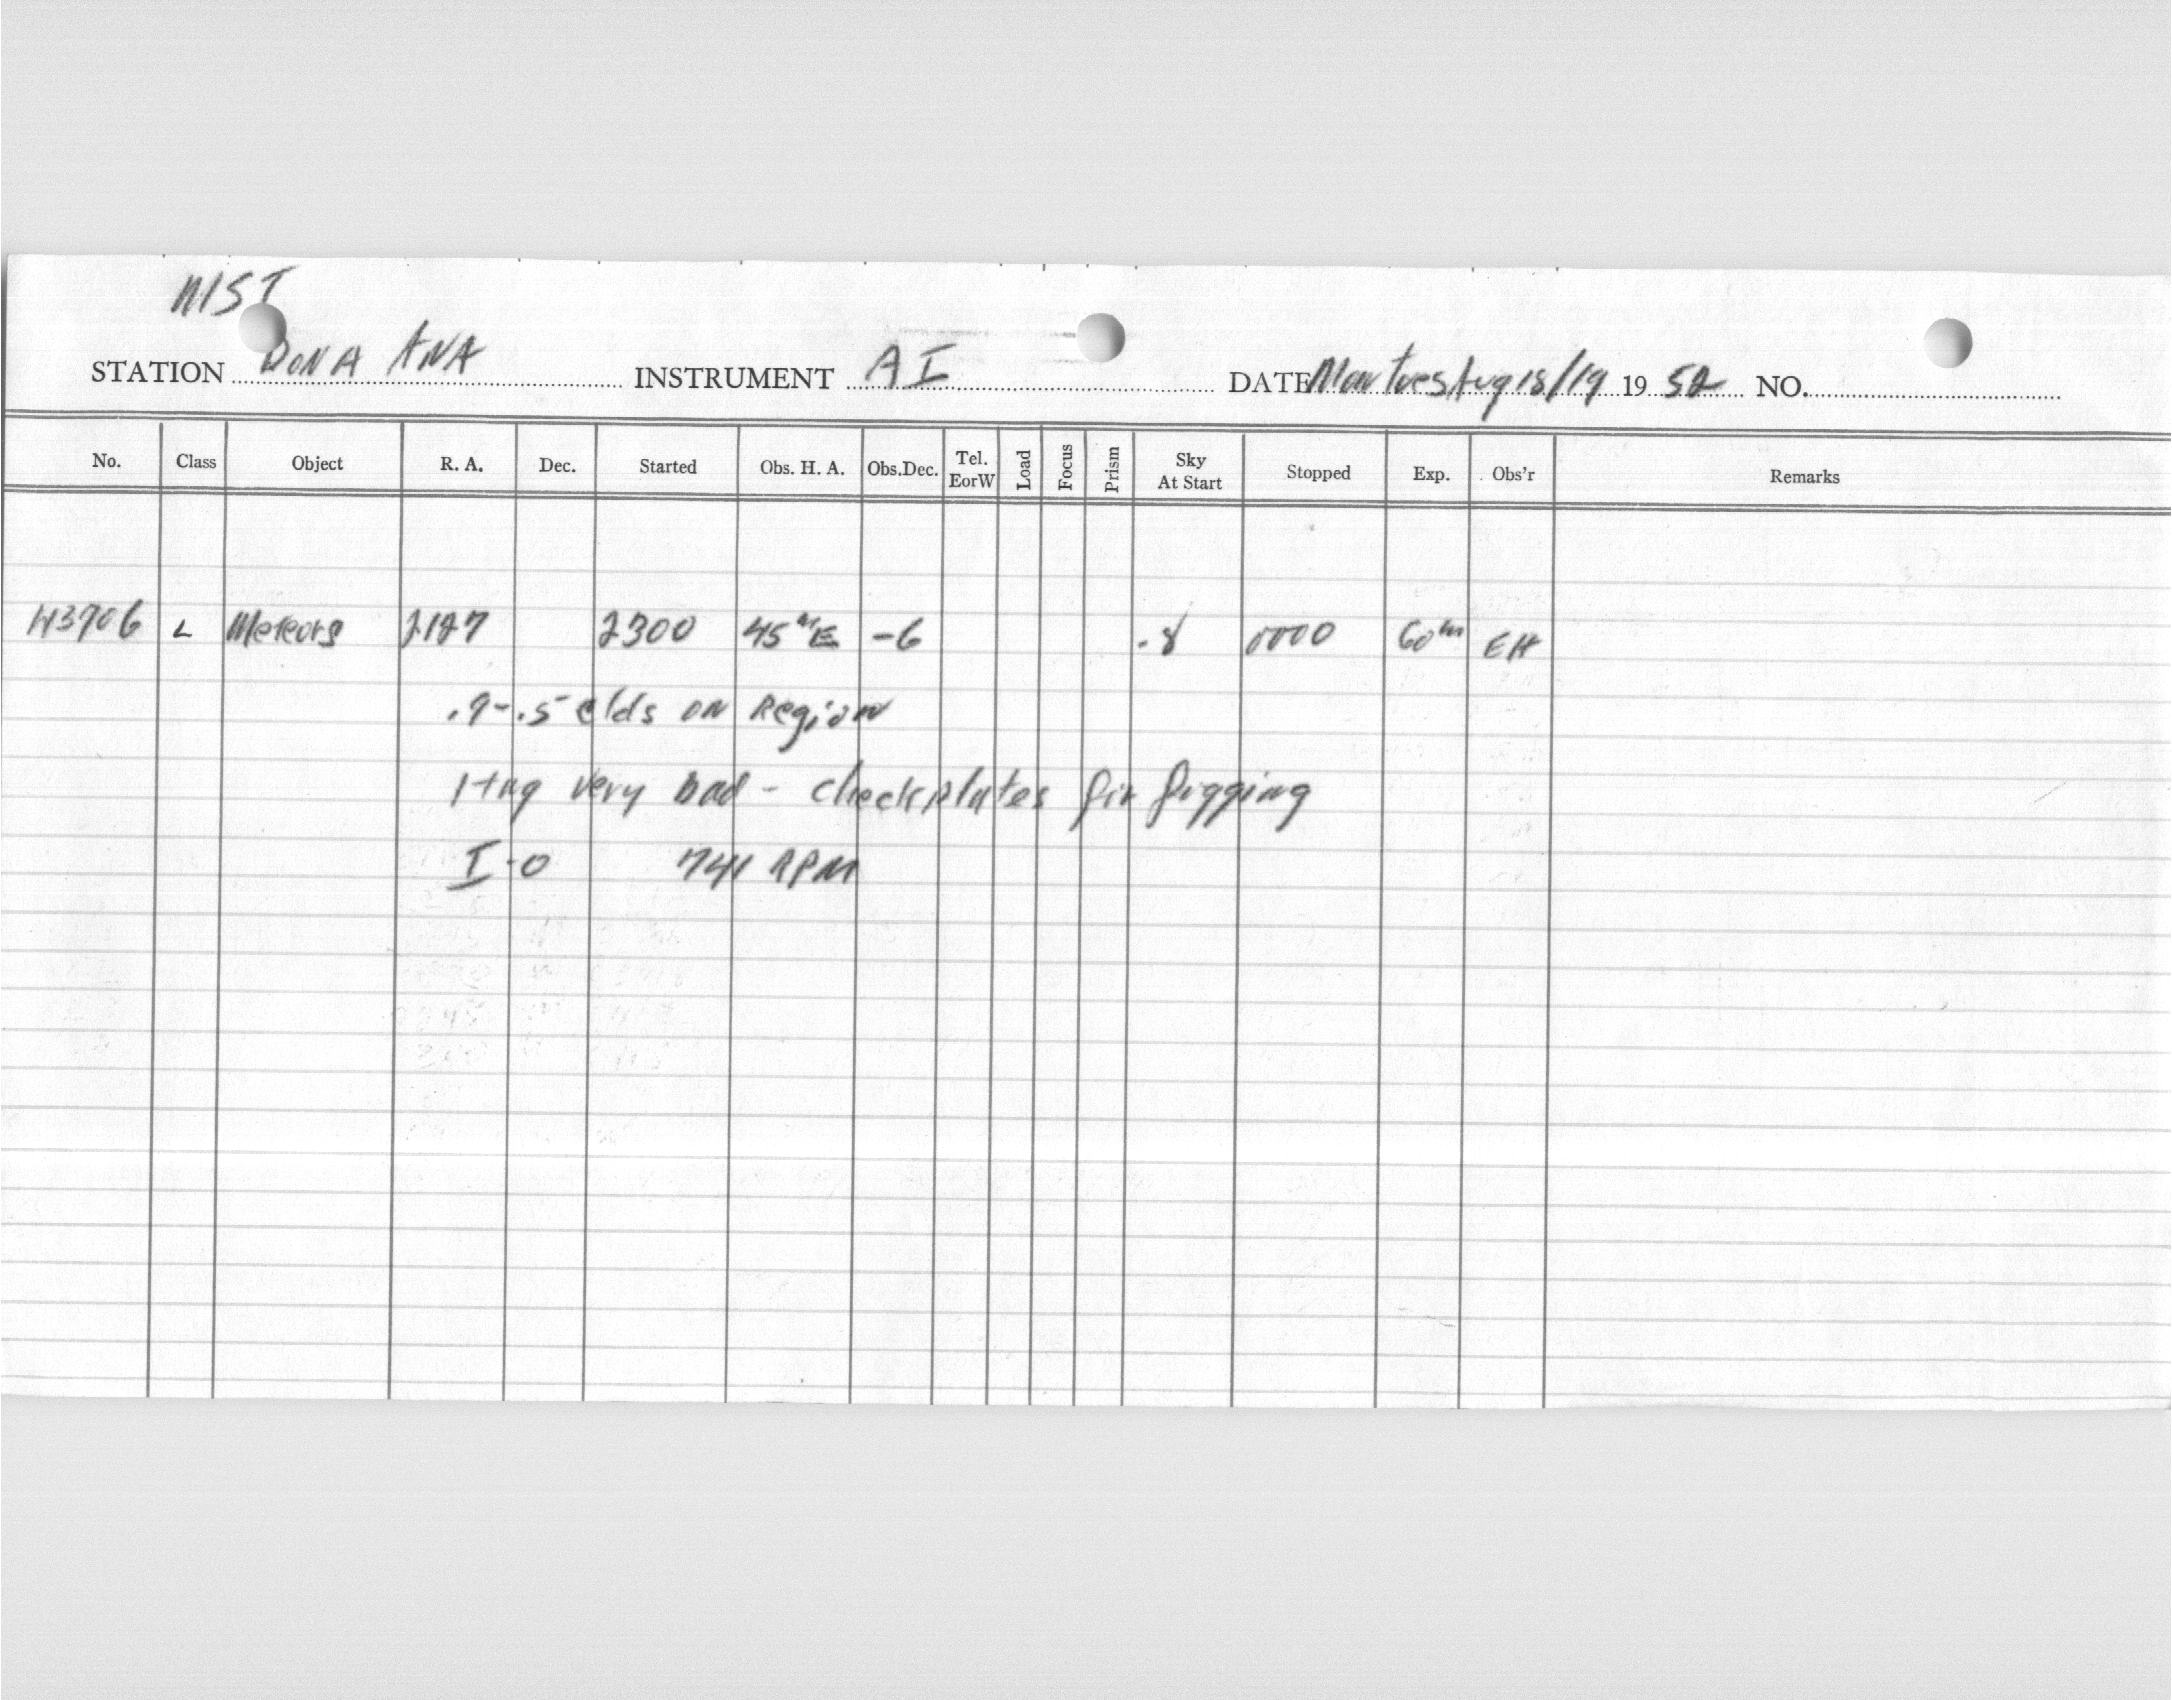 MST
STATION DONA ANA INSTRUMENT AI DATE Mon Tues Aug 18/19 19 52 NO.
No. Class Object R. A. Dec. Started Obs. H. A. Obs.Dec. Tel. EorW Load Focus Prism Sky At Start Stopped Exp. Obs'r Remarks
H3706 L Meteors 2127 2300 45ᵐE -6 .8 0000 60ᵐ EH
.9-.5 clds on Region
ltng very bad - check plates for fogging
I-0 741 RPM